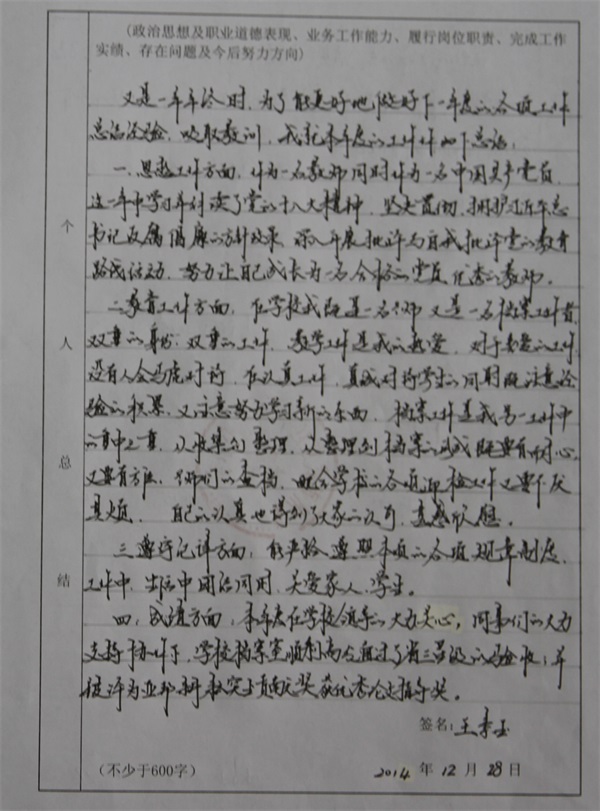 (政治思想及职业道德表现、业务工作能力、履行岗位职责、完成工作
实绩、存在问题及今后努力方向)
个人总结
又是一年年终时,为了能更好地做好下一年度的各项工作
总结经验,吸取教训,我把本年度的工作作如下总结:
一、思想工作方面,作为一名教师同时作为一名中国共产党员
这一年中学习并研读了党的十八大精神,坚决贯彻,拥护习近平总
书记反腐倡廉的方针政策,深入开展批评与自我批评党的教育
路线活动,努力让自己成长为一名合格的党员优秀的教师。
二、教育工作方面,在学校我既是一名教师又是一名档案工作者,
双重的身份,双重的工作,教学工作是我的热爱,对于热爱的工作
没有人会马虎对待,在认真工作,真诚对待学生的同时既注意经
验的积累,又注意努力学习新的东西,档案工作是我另一工作中
的重中之重,从收集到整理,从整理到档案的形成既要有耐心
又要有方法,老师们的查档,配合学校的各项迎检工作又要不厌
其烦,自己的认真也得到了大家的认可,直感欣慰。
三、遵守纪律方面,能严格遵照本项的各项规章制度,
工作中,生活中团结同事,关爱家人、学生。
四、成绩方面,本年度在学校领导的大力关心,同事们的大力
支持协作下,学校档案室顺利高分通过了省三星级的验收;并
被评为
奖获优秀论文指导奖。
签名:王
(不少于600字)
2014 年 12 月 28 日